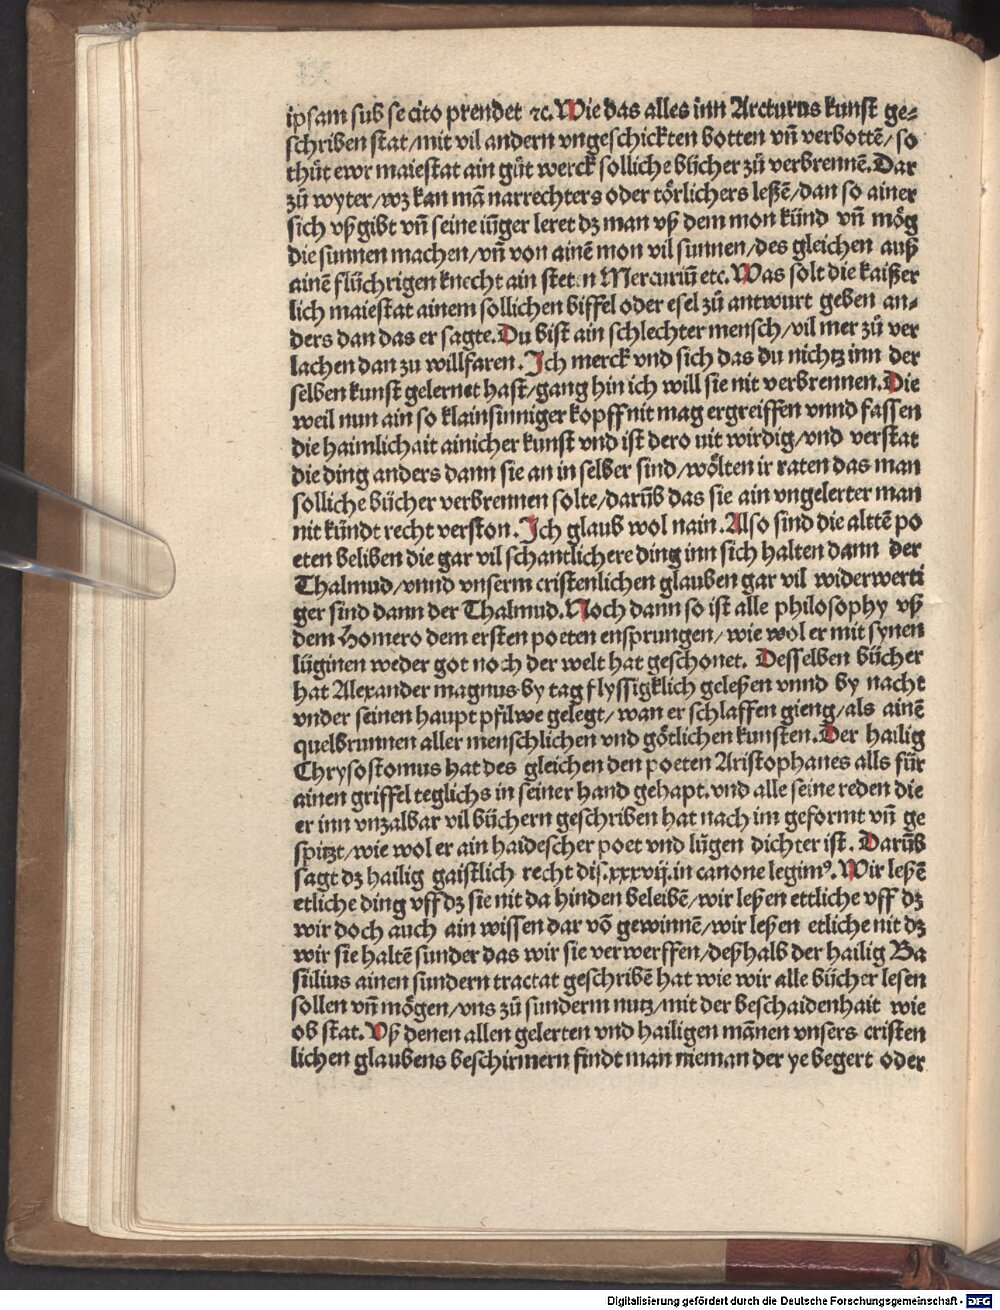 ipsam sub se cito prendet ꝛc. Wie das alles inn Arcturus kunst ge⸗
schriben stat/mit vil andern vngeschickten botten vn̄ verbottē/so
thůt ewr maiestat ain gůt werck solliche bücher zů verbrennē. Dar
zů wyter/wz kan mā narrechters oder törlichers leßē/dan so ainer
sich vß gibt vn̄ seine iūger leret dz man vß dem mon künd vn̄ mög
die sunnen machen/vn̄ von ainē mon vil sunnen/des gleichen auß
ainē flüchrigen knecht ain stet n Mercuriū etc. Was solt die kaißer
lich maiestat ainem sollichen biffel oder esel zů antwurt geben an⸗
ders dan das er sagte. Du bist ain schlechter mensch/vil mer zů ver
lachen dan zu willfaren. Ich merck vnd sich das du nichtz inn der
selben kunst gelernet hast/gang hin ich will sie nit verbrennen. Die
weil nun ain so klainsinniger kopff nit mag ergreiffen vnnd fassen
die haimlichait ainicher kunst vnd ist dero nit wirdig/vnd verstat
die ding anders dann sie an in selber sind/wölten ir raten das man
solliche bücher verbrennen solte/darūb das sie ain vngelerter man
nit kündt recht verston. Ich glaub wol nain. Also sind die alttē po
eten beliben die gar vil schantlichere ding inn sich halten dann der
Thalmud/vnnd vnserm cristenlichen glauben gar vil widerwerti
ger sind dann der Thalmud. Noch dann so ist alle philosophy vß
dem Homero dem ersten poeten ensprungen/wie wol er mit synen
lüginen weder got noch der welt hat geschonet. Desselben bücher
hat Alexander magnus by tag flyssigklich geleßen vnnd by nacht
vnder seinen haupt pfilwe gelegt/wan er schlaffen gieng/als ainē
quelbrunnen aller menschlichen vnd götlichen kunsten. Der hailig
Chrysostomus hat des gleichen den poeten Aristophanes alls für
ainen griffel teglichs in seiner hand gehapt. vnd alle seine reden die
er inn vnzalbar vil büchern geschriben hat nach im geformt vn̄ ge
spitzt/wie wol er ain haidescher poet vnd lügen dichter ist. Darūb
sagt dz hailig gaistlich recht dis. xxxvij. in canone legimꝰ. Wir leßē
etliche ding vff dz sie nit da hinden beleibē/wir leßen ettliche vff dz
wir doch auch ain wissen dar vō gewinnē/wir leßen etliche nit dz
wir sie haltē sunder das wir sie verwerffen/deßhalb der hailig Ba
silius ainen sundern tractat geschribē hat wie wir alle bücher lesen
sollen vn̄ mögen/vns zů sunderm nutz/mit der beschaidenhait wie
ob stat. Vß denen allen gelerten vnd hailigen mānen vnsers cristen
lichen glaubens beschirmern findt man nieman der ye begert oder
Digitalisierung gefördert durch die Deutsche Forschungsgemeinschaft - DFG